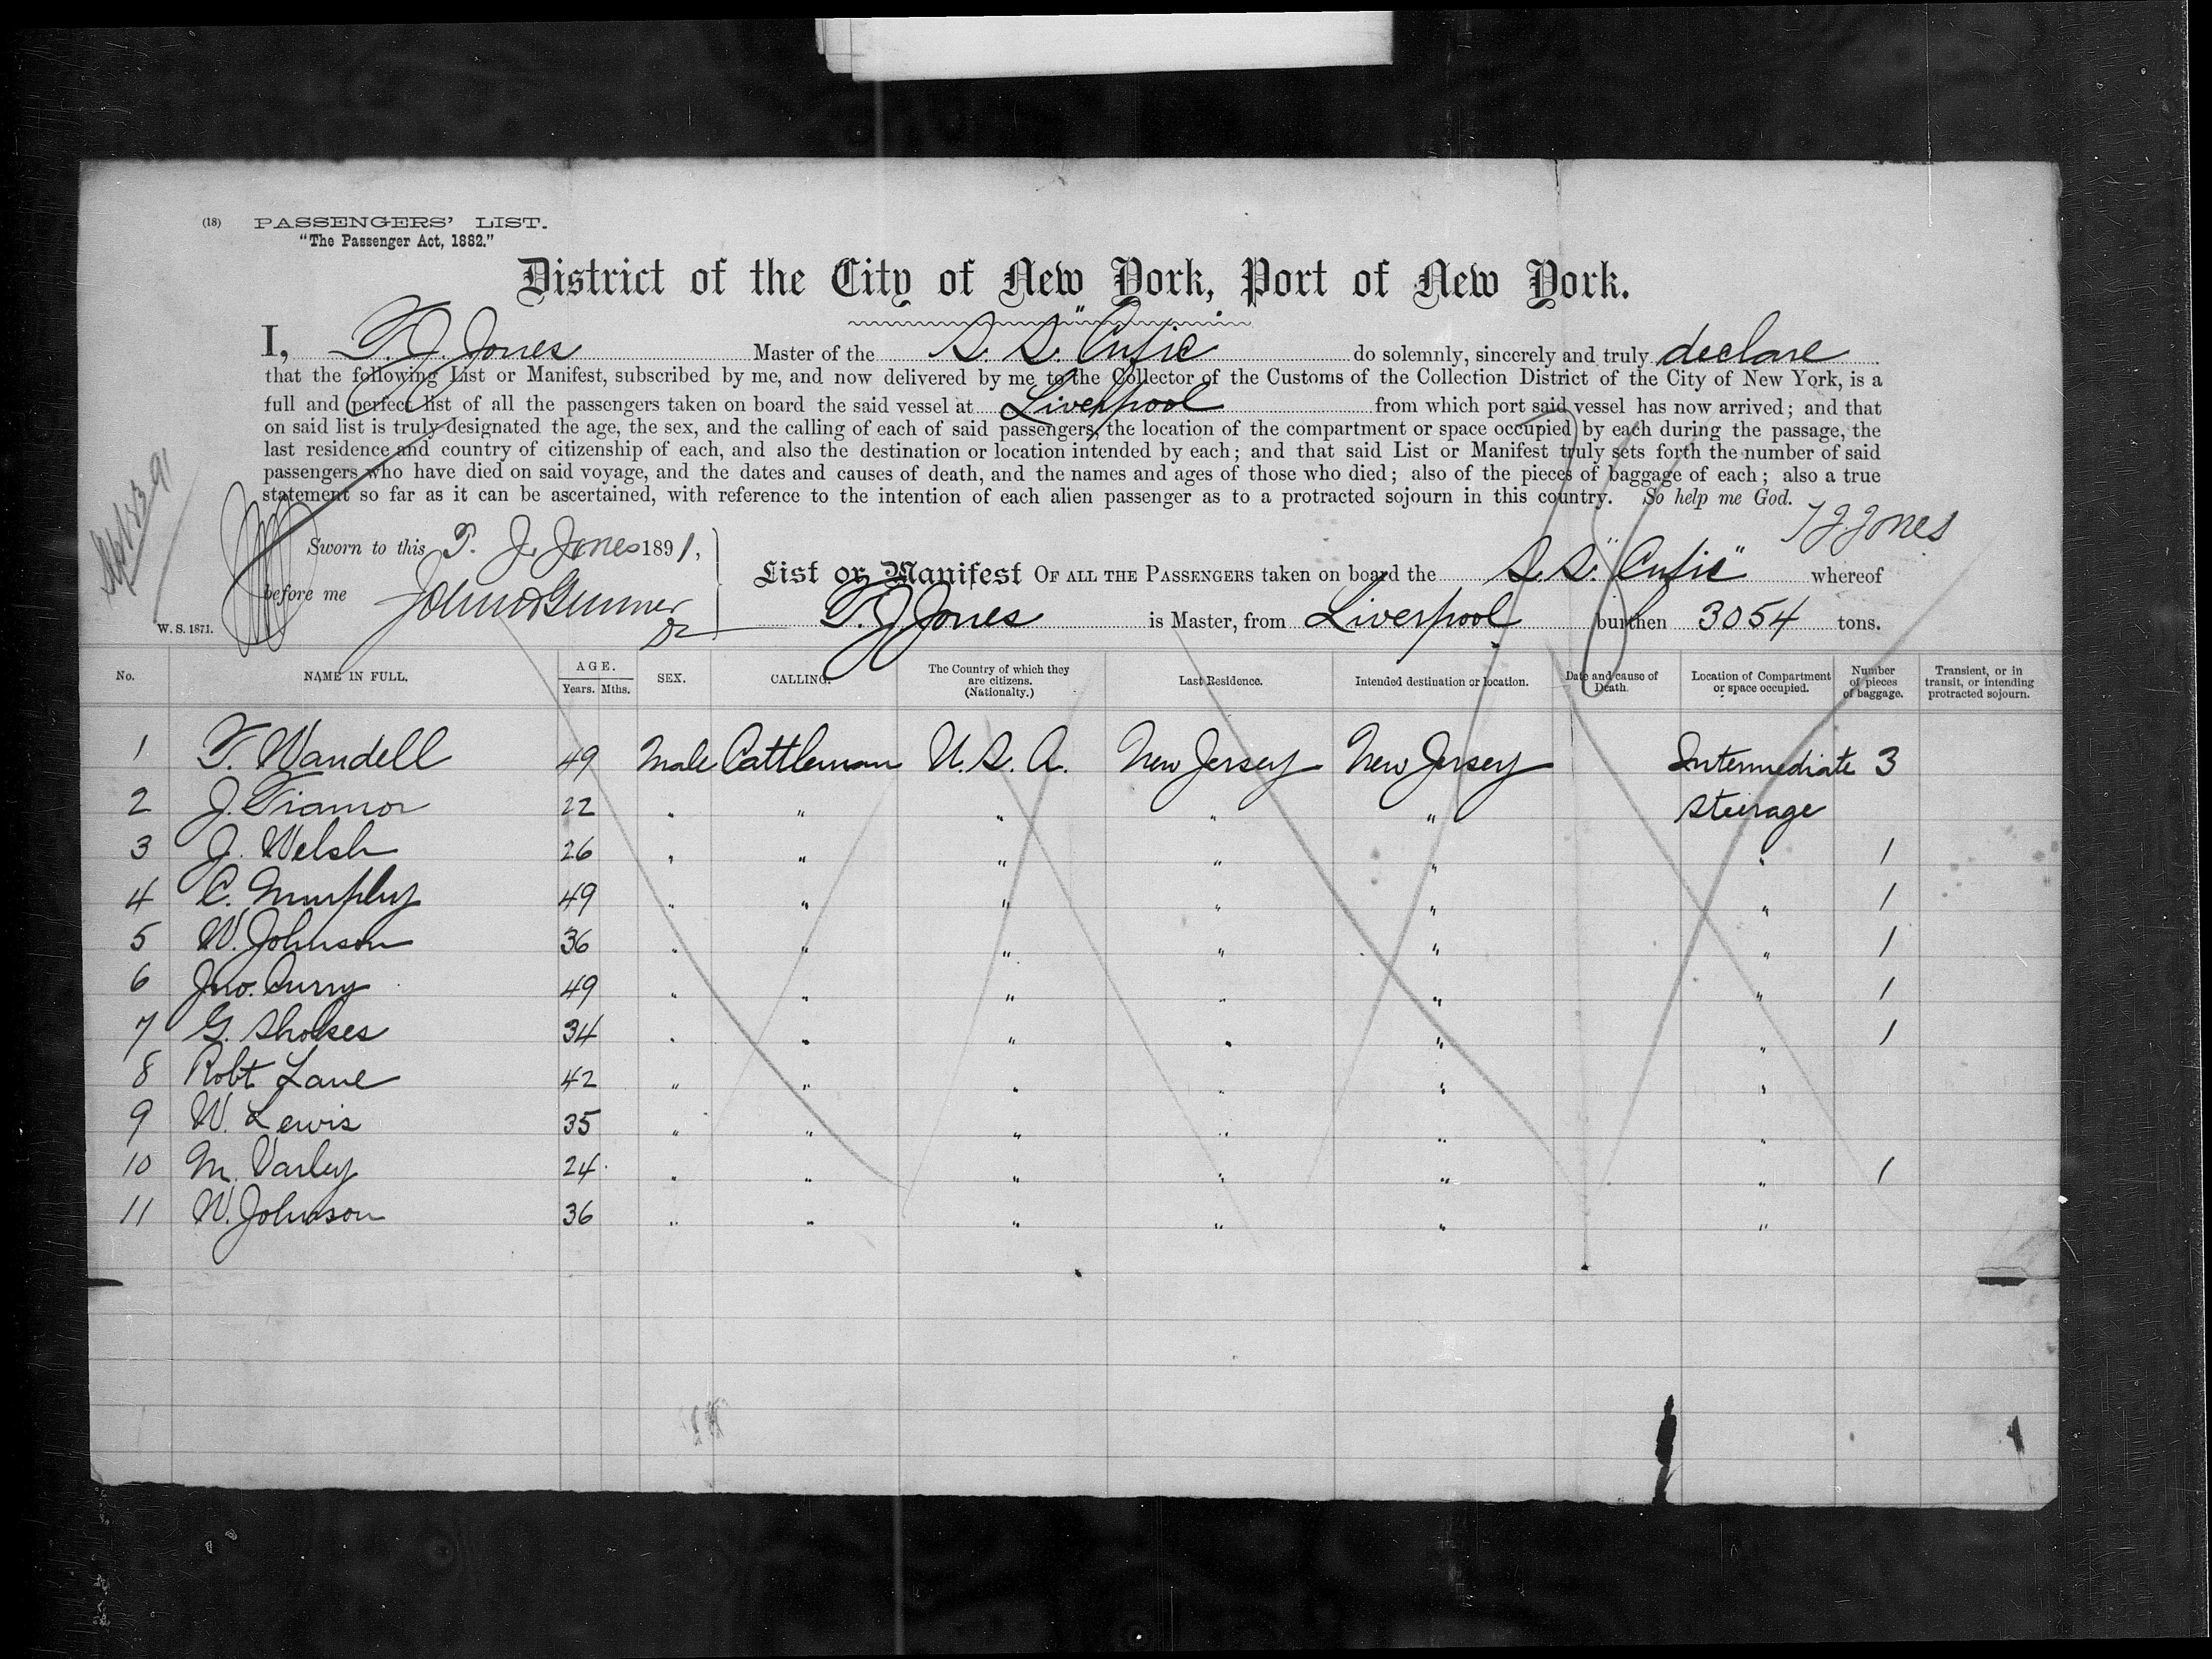 (18) PASSENGERS' LIST.
"The Passenger Act, 1882."
District of the City of New York, Port of New York.
I, T. J. Jones Master of the S. S. "Cufic" do solemnly, sincerely and truly declare
that the following List or Manifest, subscribed by me, and now delivered by me to the Collector of the Customs of the Collection District of the City of New York, is a
full and perfect list of all the passengers taken on board the said vessel at Liverpool from which port said vessel has now arrived; and that
on said list is truly designated the age, the sex, and the calling of each of said passengers, the location of the compartment or space occupied by each during the passage, the
last residence and country of citizenship of each, and also the destination or location intended by each; and that said List or Manifest truly sets forth the number of said
passengers who have died on said voyage, and the dates and causes of death, and the names and ages of those who died; also of the pieces of baggage of each; also a true
statement so far as it can be ascertained, with reference to the intention of each alien passenger as to a protracted sojourn in this country. So help me God.
T J Jones
Sworn to this T. J. Jones 1891,
before me
List or Manifest OF ALL THE PASSENGERS taken on board the S. S. "Cufic" whereof
T. J. Jones is Master, from Liverpool burthen 3054 tons.
W. S. 1871.
No. NAME IN FULL. AGE. Years. Mths. SEX. CALLING. The Country of which they are citizens. (Nationalty.) Last Residence. Intended destination or location. Date and cause of Death. Location of Compartment or space occupied. Number of pieces of baggage. Transient, or in transit, or intending protracted sojourn.
1 T. Wandell 49 Male Cattleman U. S. A. New Jersey New Jersey Intermediate 3
2 J. Tiamor 22 " " " " " Steerage
3 J. Welsh 26 " " " " " " 1
4 C. Murphy 49 " " " " " " 1
5 W. Johnson 36 " " " " " " 1
6 Jno. Curry 49 " " " " " " 1
7 G. 34 " " " " " " 1
8 Robt Lane 42 " " " " " "
9 W. Lewis 35 " " " " " "
10 M. Varley 24 " " " " " " 1
11 W. Johnson 36 " " " " " "